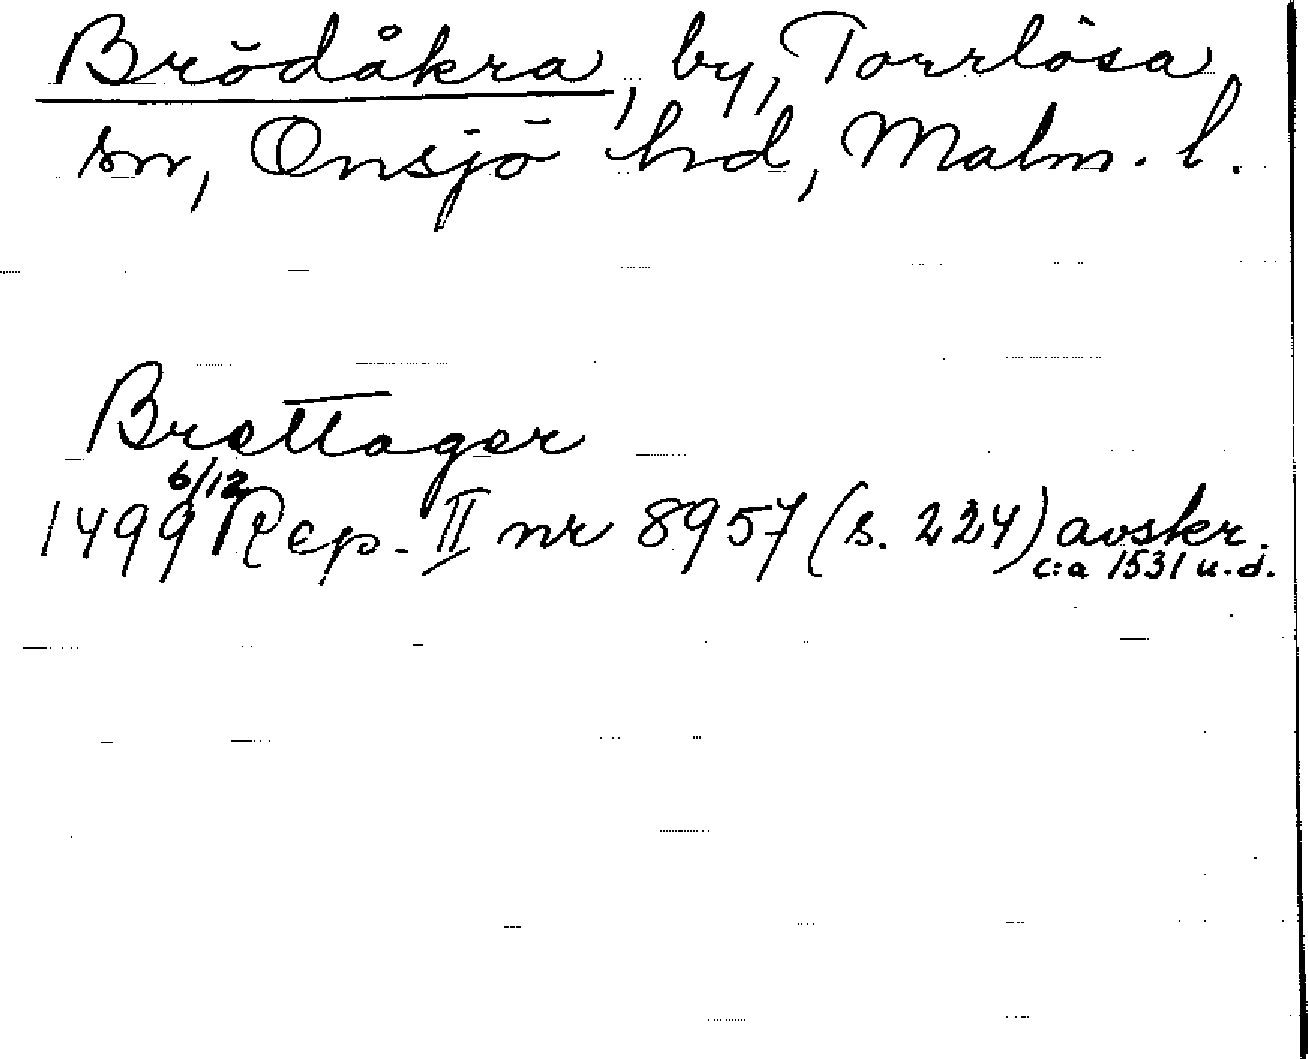 Brödåkra, by, Torrlösa
sn, Onsjö hd, Malm. l.
Brettager
6/12
1499 Rep. II nr 8957 (s. 224) avskr.
c:a 1531 u.d.